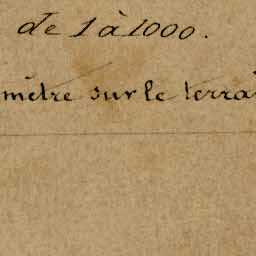 de 1 à 1000.
mètre sur le terrai